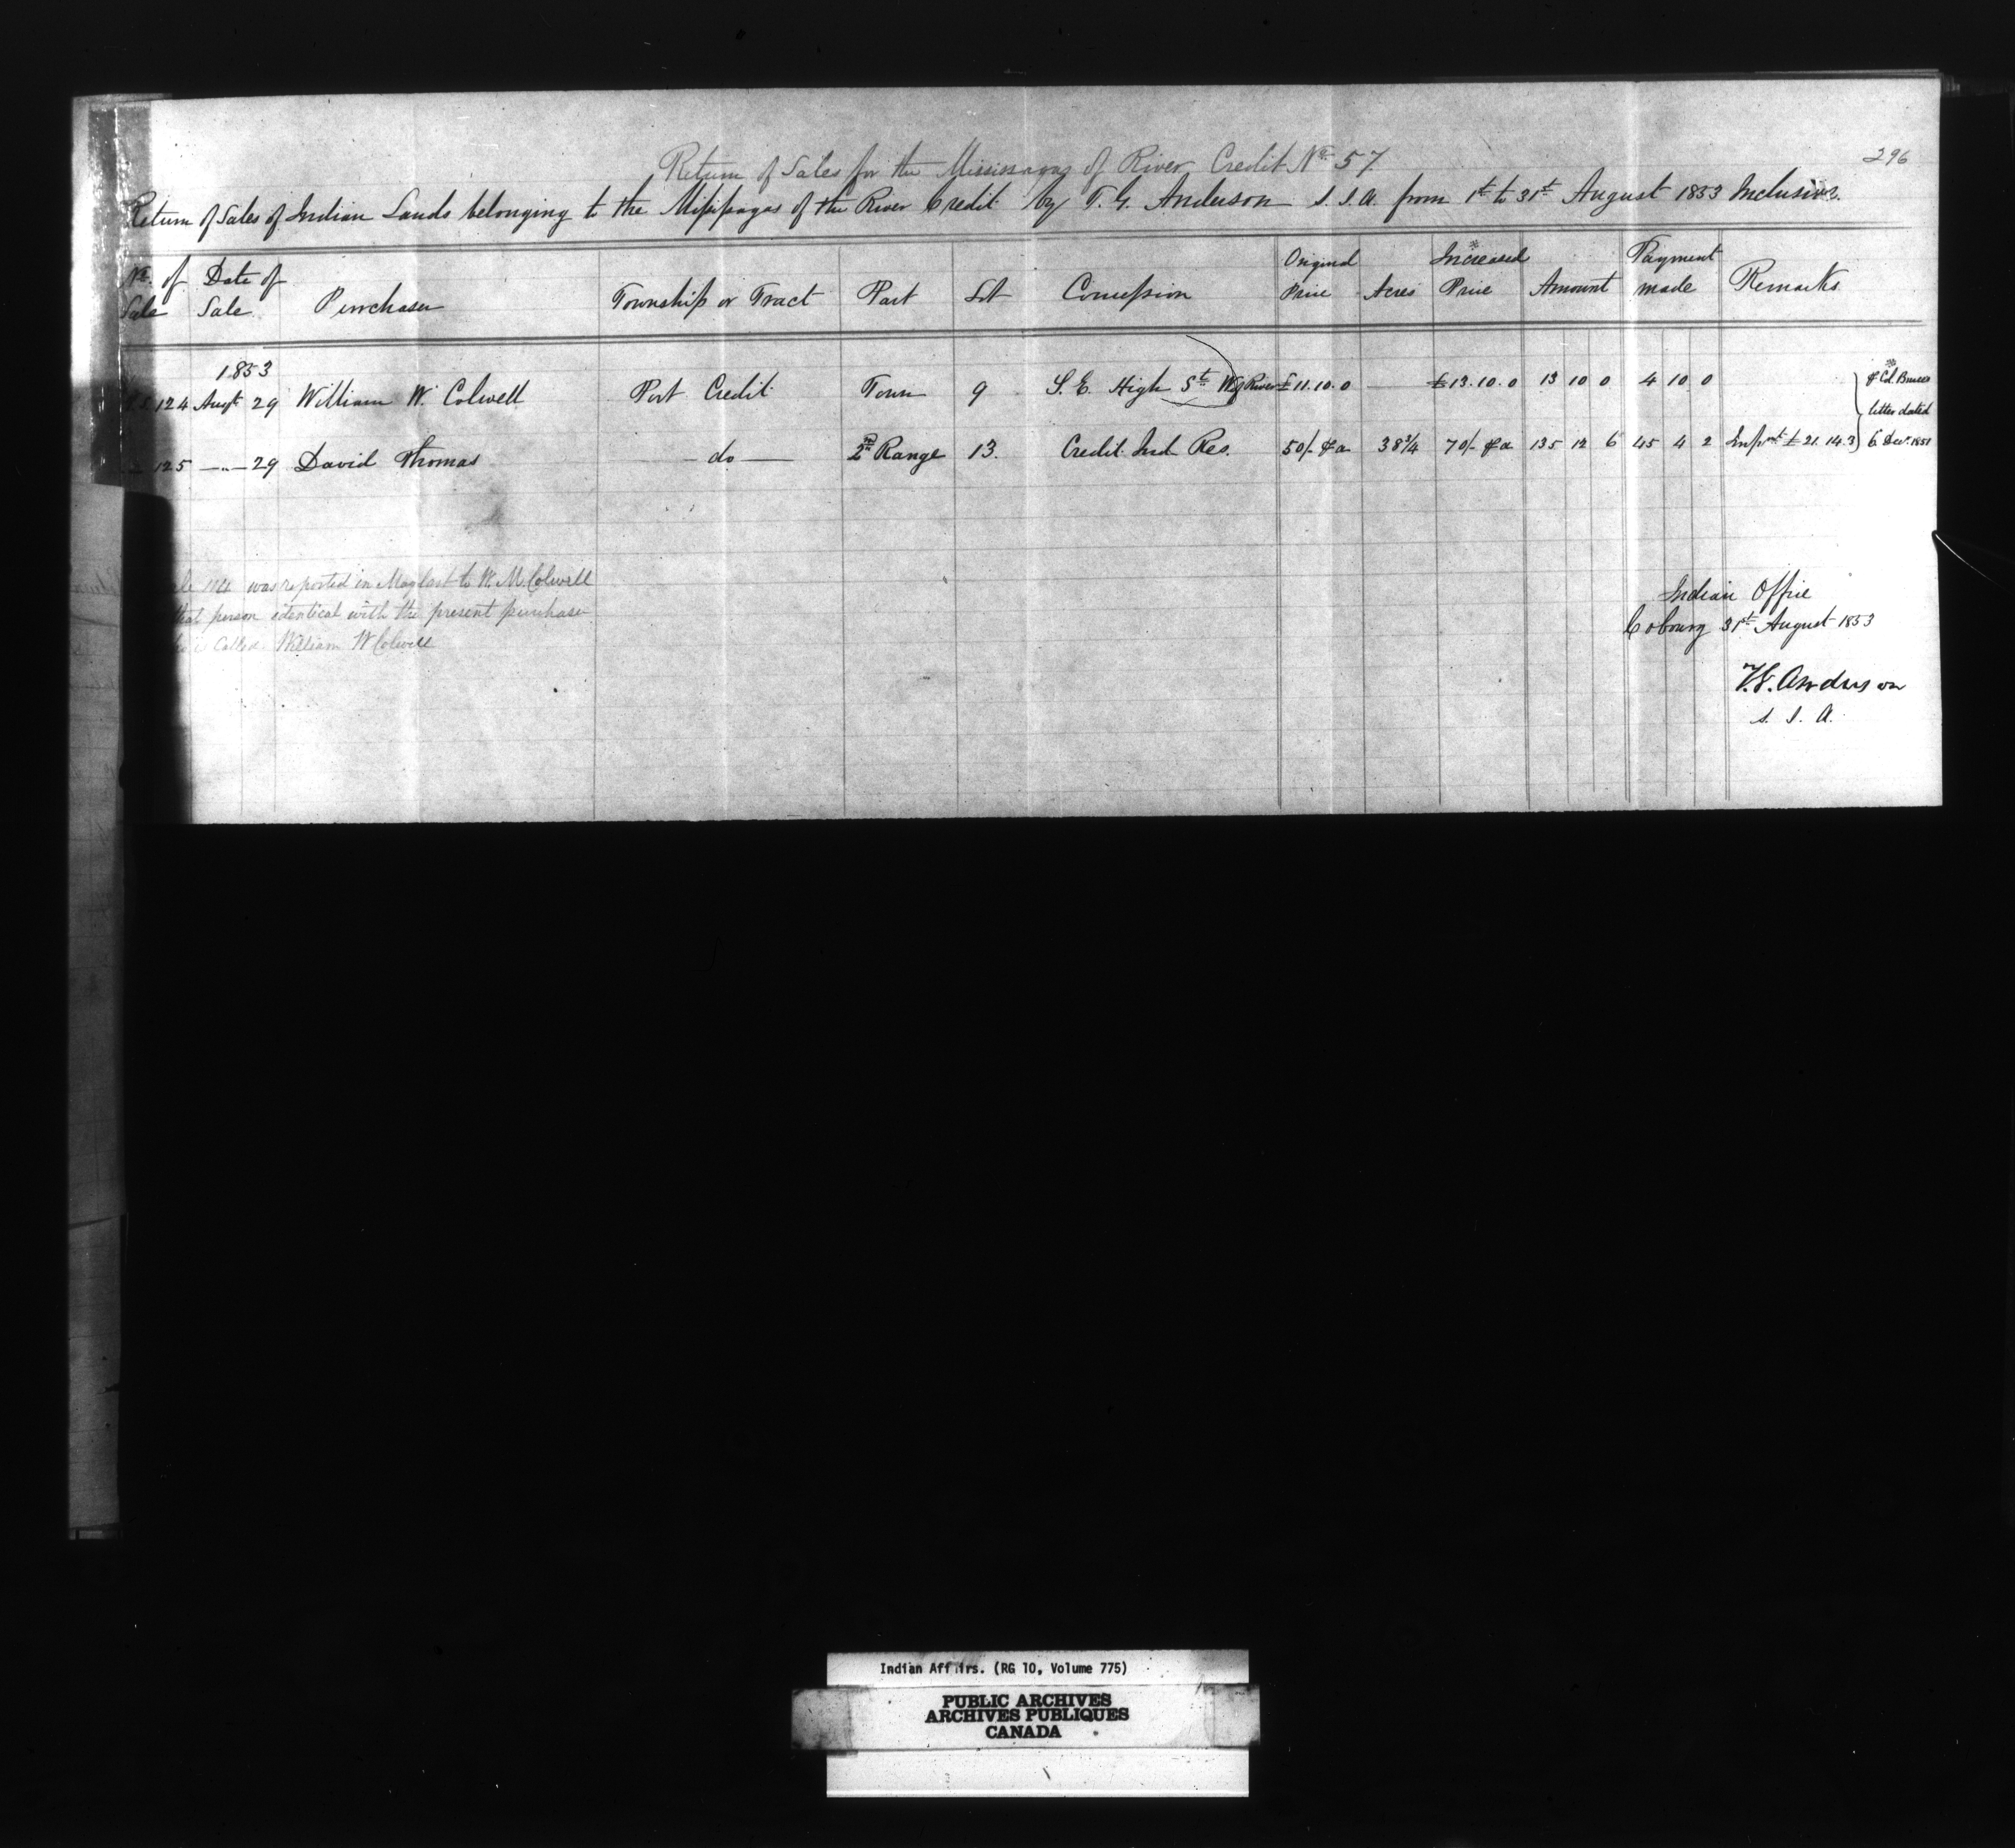 296
Return of Sales for the Mississagas of River Credit No. 57
Return of Sales of Indian Lands belonging to the Missisagas of the River Credit by T. G. Anderson S. I. A. from 1st to 31st August 1853 Inclusive.
No. of Sale Date of Sale Purchaser Township or Tract Part Lot Concession Original Price Acres Increased * Price Amount Payment made Remarks
1853
124 Augt 29 William W. Colwell Port Credit Town 9 S. E. High St W of River £11.10.0 — £13.10.0 13 10 0 4 10 0
125 —"— 29 David Thomas — do — 2nd Range 13. Credit Ind. Res. 50/- p a 38 3/4 70/- p a 135 12 6 45 4 2 Inpmt £21.14.3
* p Col. Bruce's
letter dated
6 Decr. 1851
1124 was reported in May last to W. M. Colwell
that person identical with the present purchaser
is called William W Colwell
Indian Office
Cobourg 31st August 1853
T. G. Anderson
S. I. A.
Indian Affairs. (RG 10, Volume 775)
PUBLIC ARCHIVES
ARCHIVES PUBLIQUES
CANADA